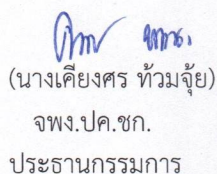 (นางเคียงศร ท้วมจุ้ย)
จพง.ปค.ชก.
ประธานกรรมการ